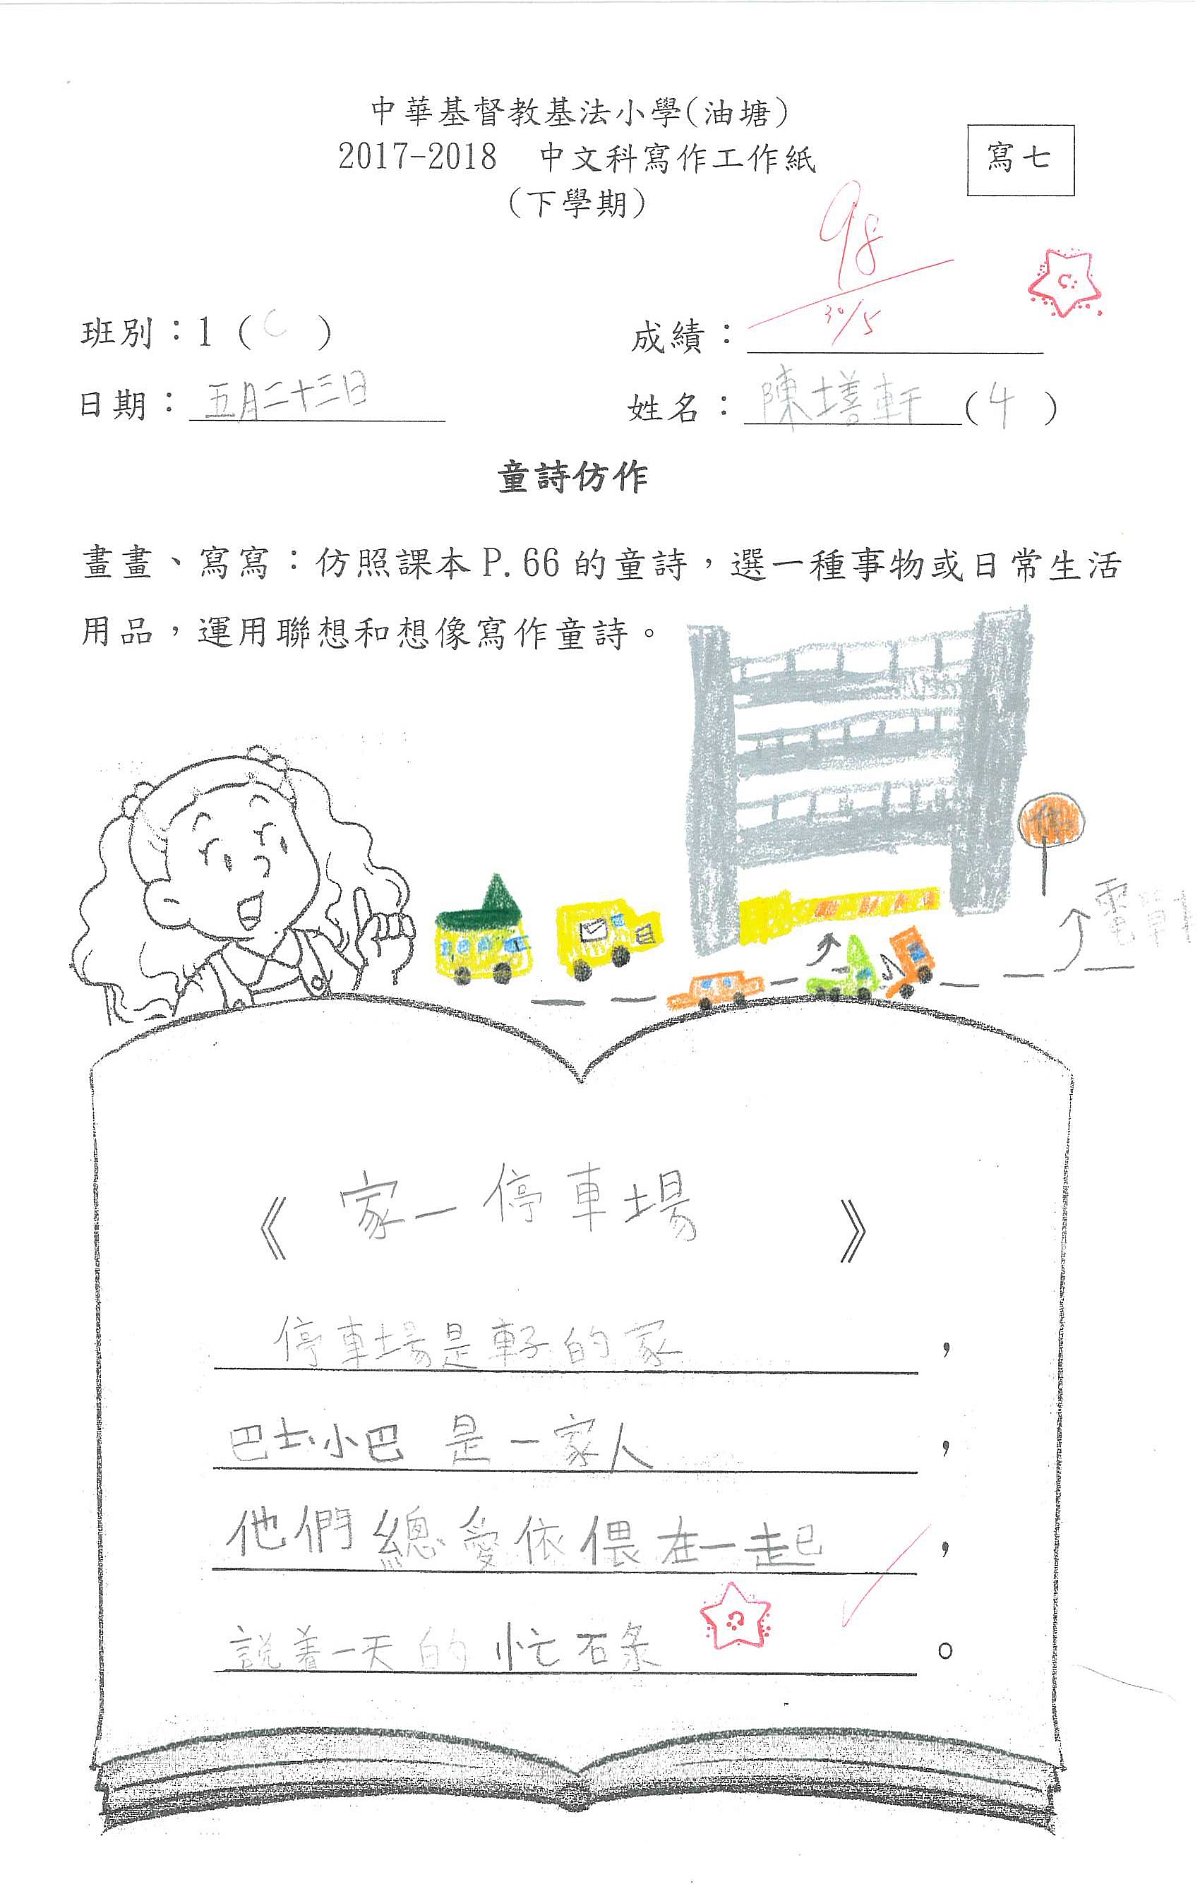 中華基督教基法小學(油塘)
2017-2018 中文科寫作工作紙
寫七
(下學期)
98
30/5
班別：1（C）
成績：
日期：五月二十三日
姓名：陳墡軒(4)
童詩仿作
畫畫、寫寫：仿照課本P.66的童詩，選一種事物或日常生活
用品，運用聯想和想像寫作童詩。
《家—停車場》
停車場是車子的家，
巴士小巴是一家人，
他們總愛依偎在一起，
說着一天的忙碌。